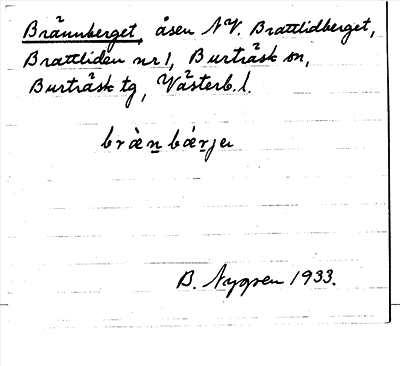 Brännberget, åsen N.V. Brattlidberget,
Brattliden nr 1, Burträsk sn,
Burträsk tg, Västerb. l.
brä̀n̲bǽr̲je
B. Nygren 1933.